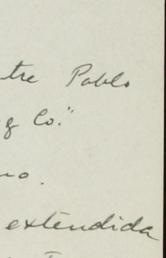 tre Pablo
g Co."
no.
extendida